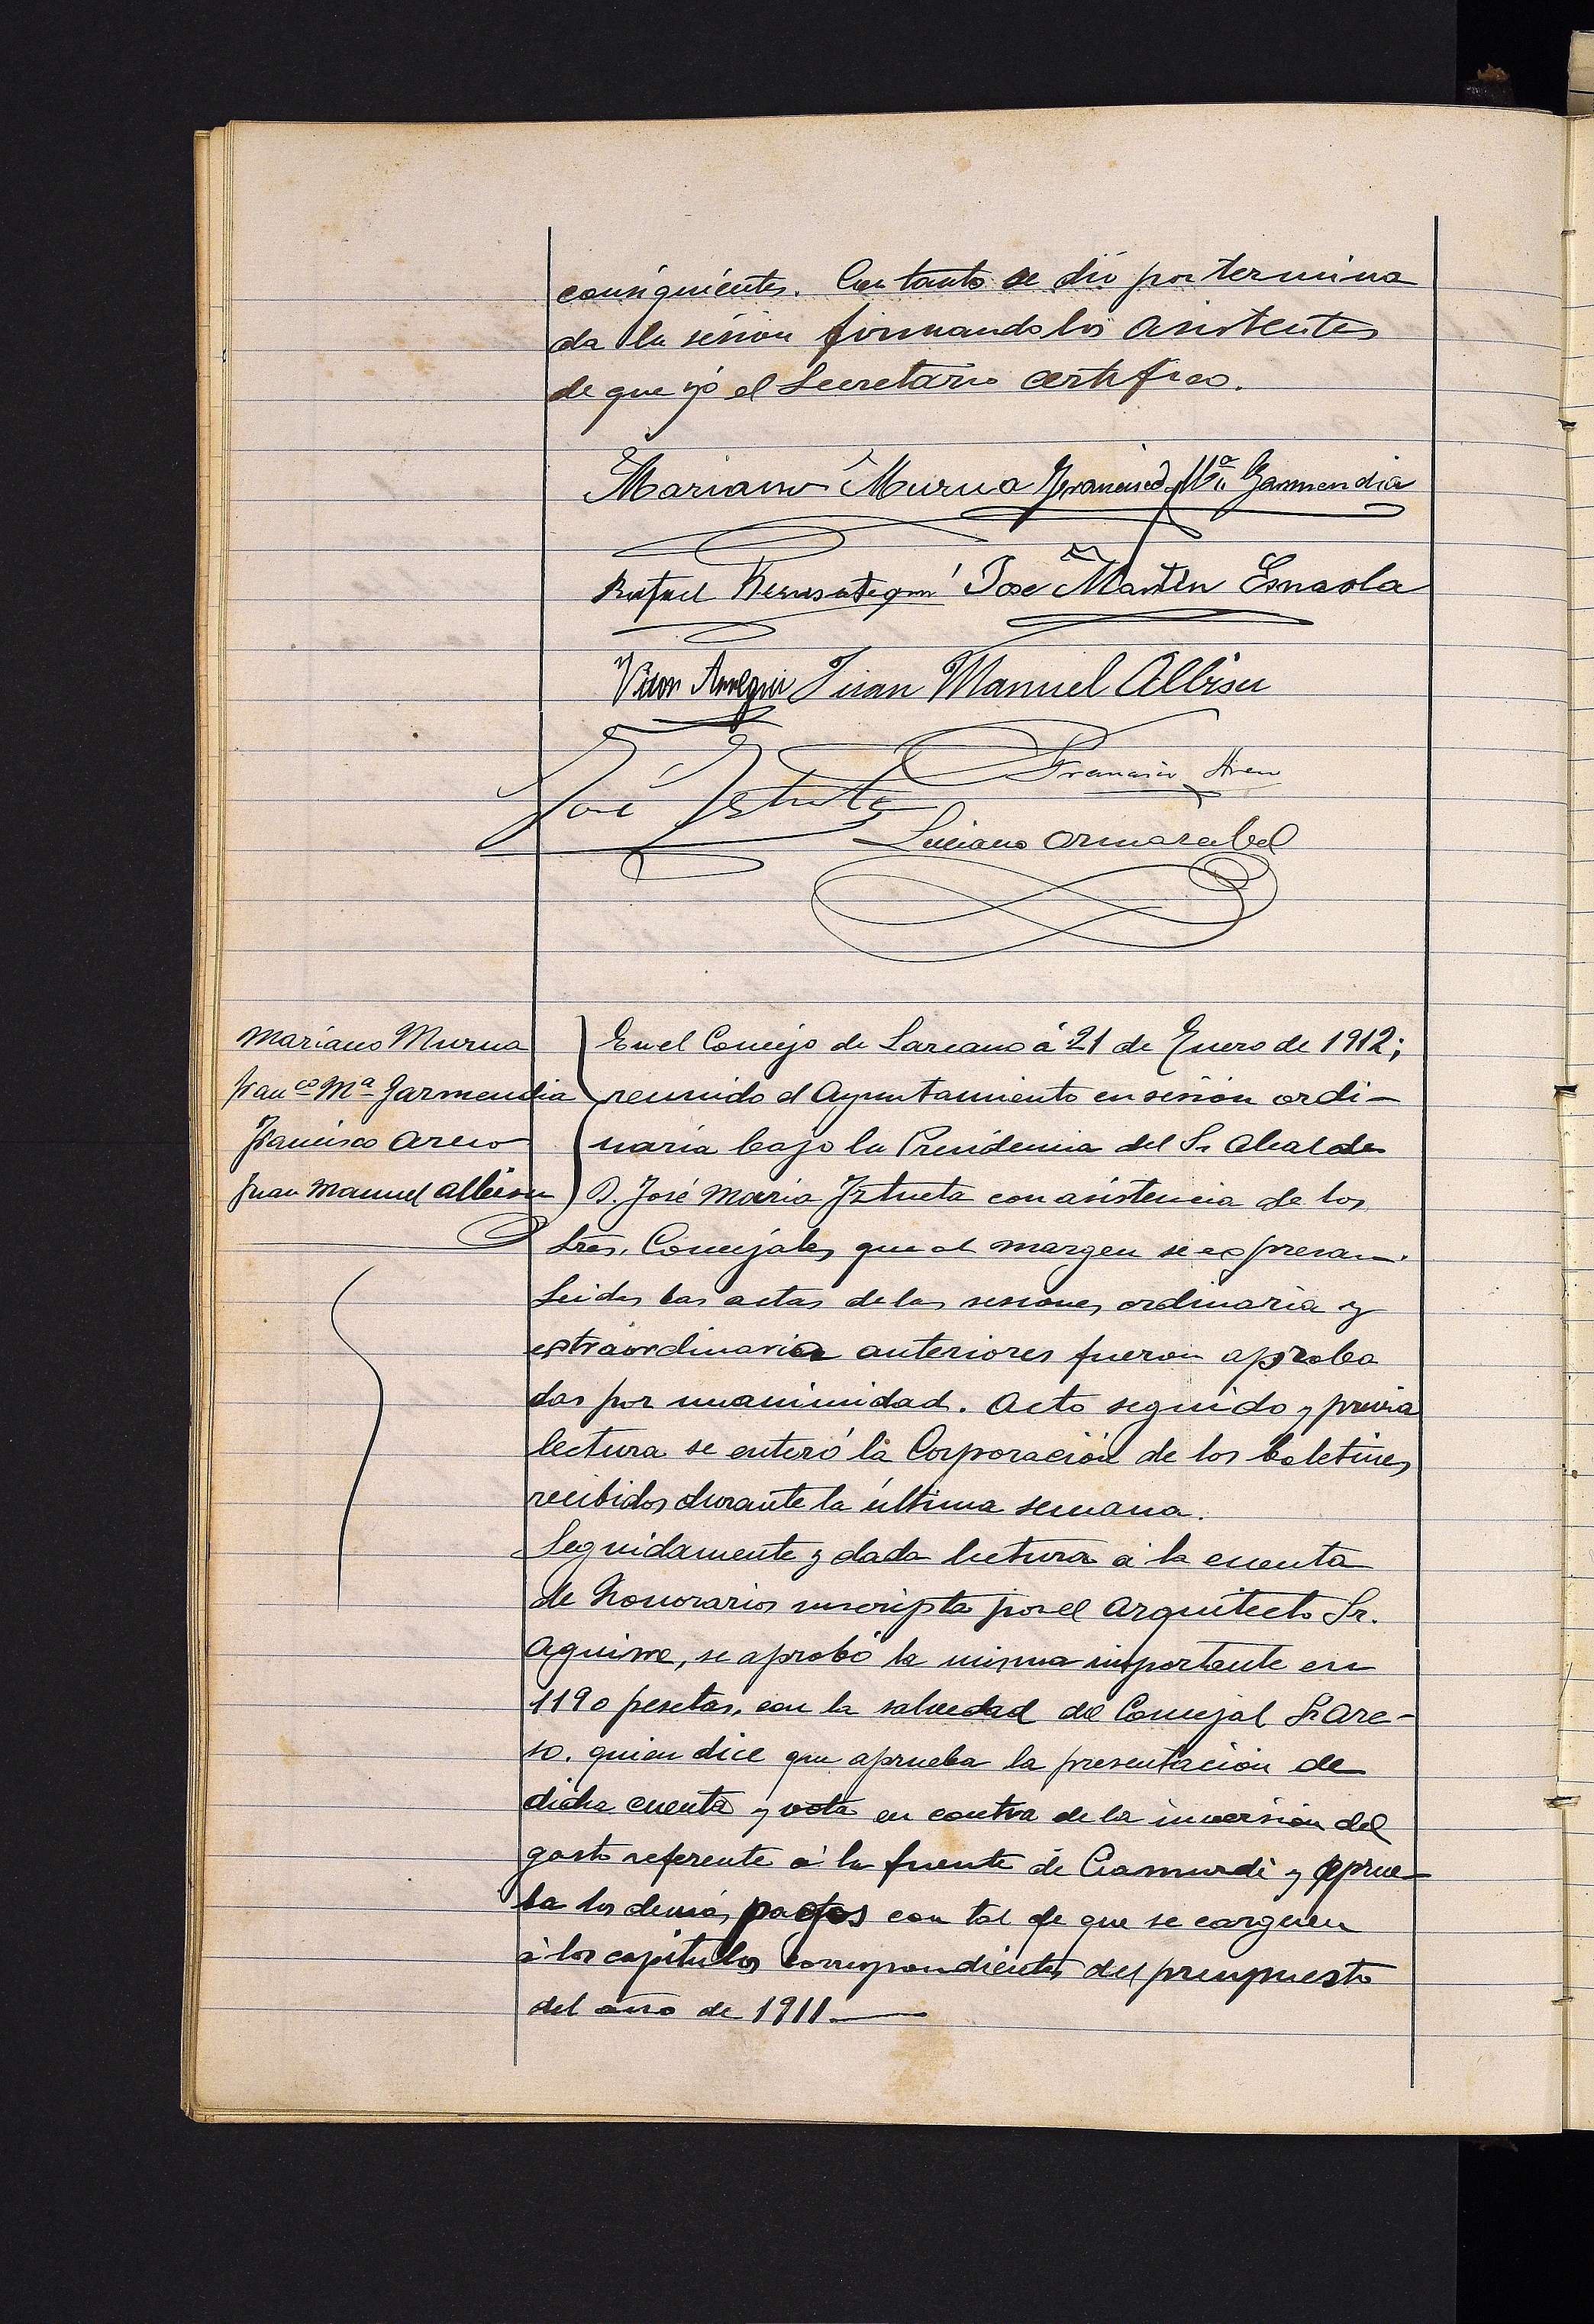 consiguientes. Con tanto se dio por termina
da la sesion firmando los asistentes
de que yó el Secretario certifico.
Mariano Murua Francisco Mª Garmendia
Rafael Jose Martin Esnaola
Juan Manuel Albisu
José Iztueta
Francisco
Luciano Ormazabal
Mariano Murua
Franco Mª Garmendia
Francisco Areso
Juan Manuel Albisu
En el Concejo de Lazcano á 21 de Enero de 1912;
reunido el Ayuntamiento en sesión ordi-
naria bajo la Presidencia del Sr Alcalde
D. José Maria Iztueta con asistencia de los
Sres. Concejales que al margen se expresan.
Leidas las actas de las sesiones ordinaria y
extraordinaria anteriores fueron aproba
das por unanimidad. Acto seguido y previa
lectura se enteró la Corporación de los boletines
recibidos durante la última semana.
Seguidamente y dada lectura á la cuenta
de Honorarios suscripta por el Arquitecto Sr.
Aguirre, se aprobó la misma importante en
1190 pesetas, con la salvedad del Concejal Sr Are-
so. quien dice que aprueba la presentación de
dicha cuenta y vota en contra de la inversion del
gasto referente á la fuente de y aprue-
ba los demás con tal de que se carguen
á los capitulos correspondientes del presupuesto
del año de 1911.